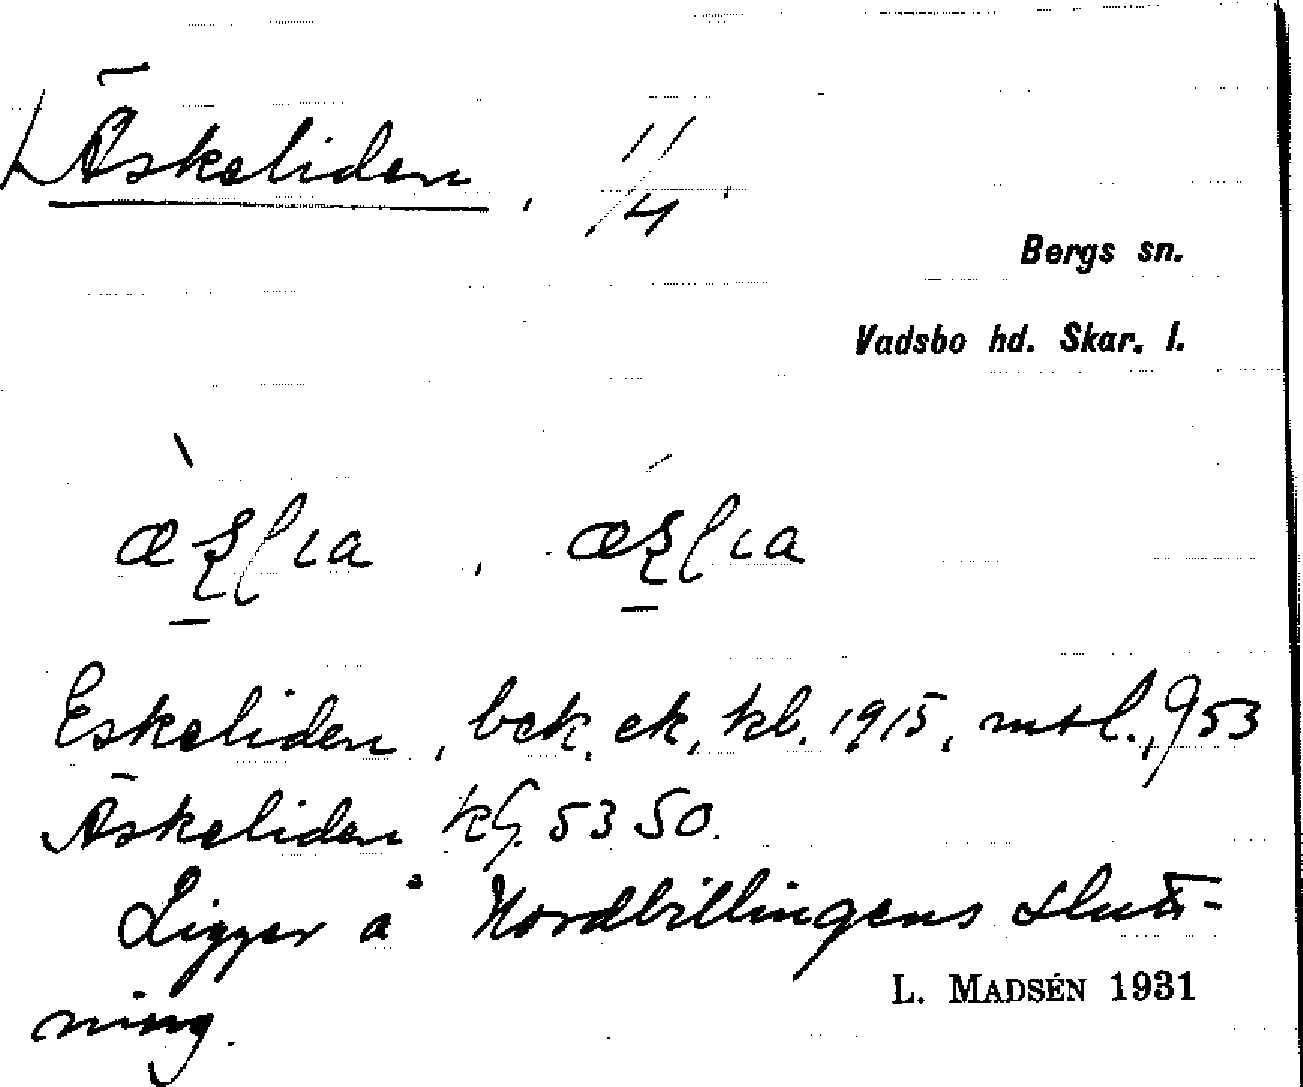 Äskeliden, 1/4.
Bergs sn.
Vadsbo hd. Skar. l.
Eskeliden, bek. ek. kb. 1915, mtl., 953
Äskeliden kG. 5350.
Ligger å Nordbillingens slutt-
ning.
L. MADSÉN 1931